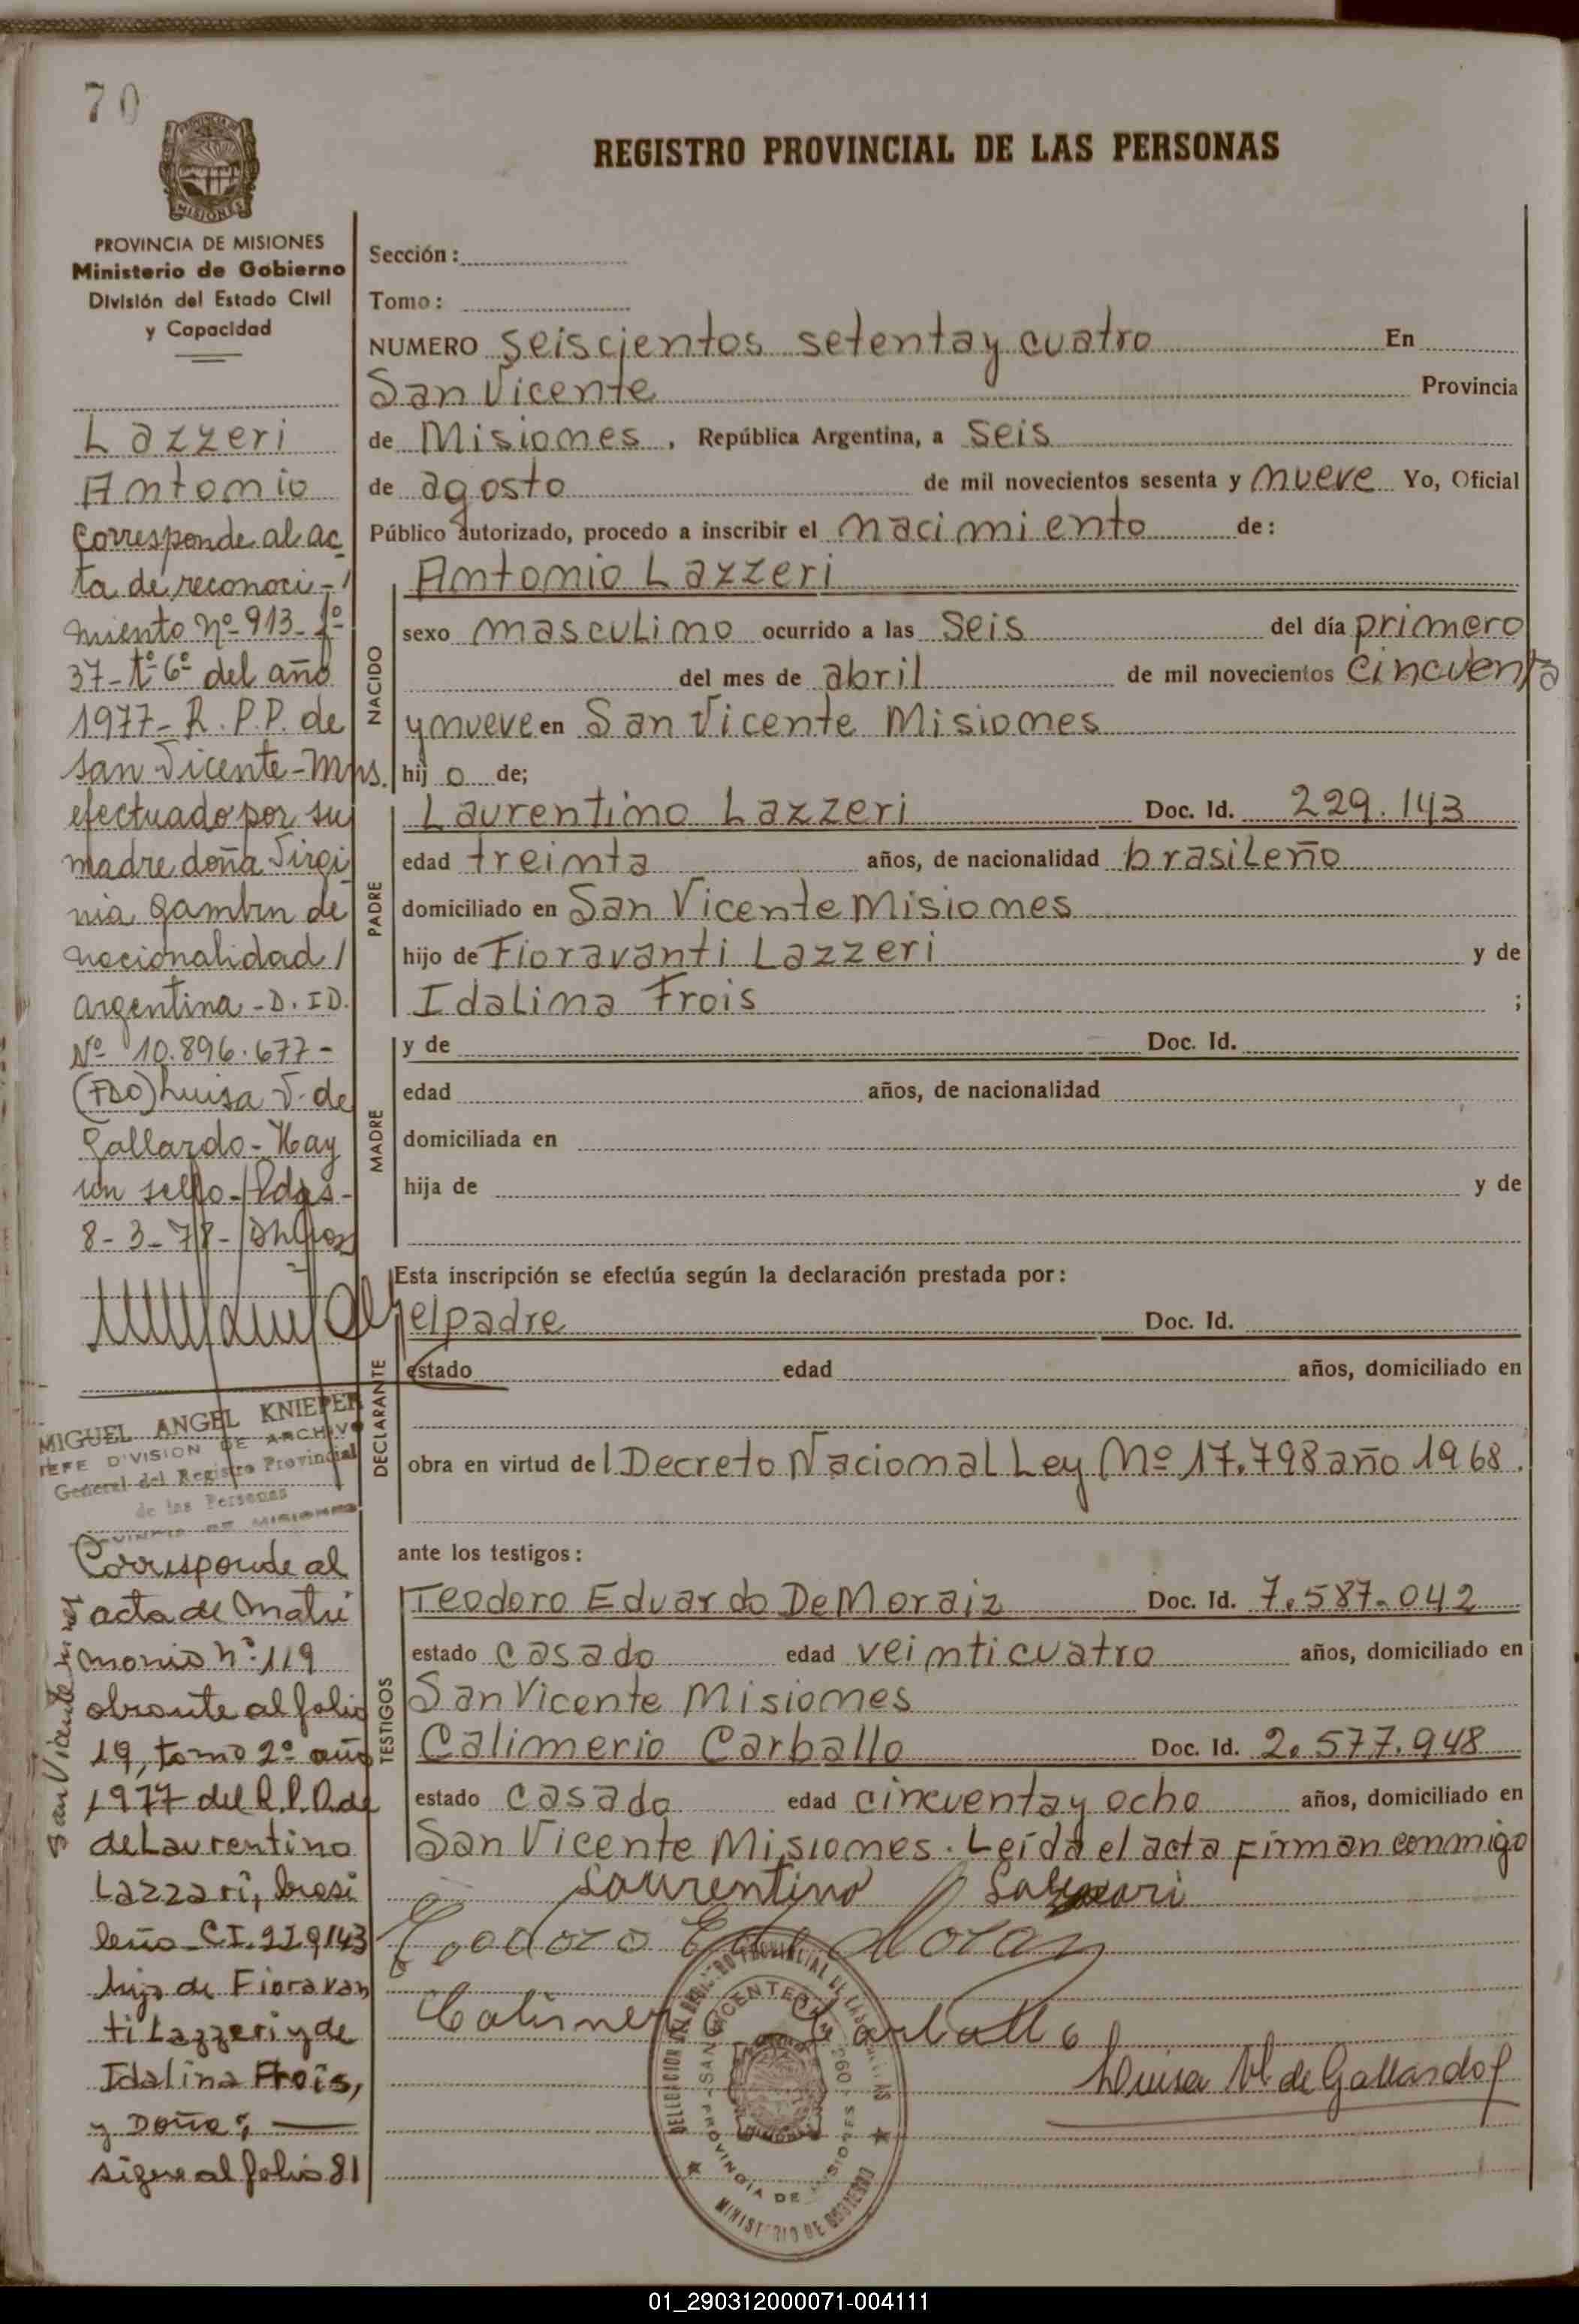 70
PROVINCIA DE MISIONES
MISIONES
PROVINCIA DE MISIONES
Ministerio de Gobierno
División del Estado Civil
y Capacidad
Lazzeri
Antonio
Corresponde al ac-
ta de reconoci-
miento Nº 913- fº
37- tº 6º del año
1977- R.P.P. de
San Vicente- Mns.
efectuado por su
madre doña Virgi-
nia Gambin de
nacionalidad
argentina - D. ID.
Nº 10.896.677-
(FDO) Luisa V. de
Gallardo- Hay
un sello- Pdas-
8-3-78-
MIGUEL ANGEL KNIEPER
JEFE DIVISION DE ARCHIVO
General del Registro Provincial
de las Personas
PROVINCIA DE MISIONES
Corresponde al
acta de Matri
monio Nº 119
obrante al folio
19, tomo 2º año
1977 del R.P.P. de
San Vicente Mnes
de Laurentino
Lazzari, brasi
leño- C.I. 229143
hijo de Fioravan
ti Lazzeri y de
Idalina Frois,
y Doña;
sigue al folio 81
REGISTRO PROVINCIAL DE LAS PERSONAS
Sección:
Tomo:
NUMERO seiscientos setenta y cuatro En
San Vicente Provincia
de Misiones, República Argentina, a seis
de agosto de mil novecientos sesenta y nueve Yo, Oficial
Público autorizado, procedo a inscribir el nacimiento de:
NACIDO
Antonio Lazzeri
sexo masculino ocurrido a las seis del día primero
del mes de abril de mil novecientos cincuenta
y nueve en San Vicente Misiones
hijo de;
PADRE
Laurentino Lazzeri Doc. Id. 229.143
edad treinta años, de nacionalidad brasileño
domiciliado en San Vicente Misiones
hijo de Fioravanti Lazzeri y de
Idalina Frois ;
MADRE
y de Doc. Id.
edad años, de nacionalidad
domiciliada en
hija de y de
Esta inscripción se efectúa según la declaración prestada por:
DECLARANTE
el padre Doc. Id.
estado edad años, domiciliado en
obra en virtud del Decreto Nacional Ley Nº 17.798 año 1968.
ante los testigos:
TESTIGOS
Teodoro Eduardo De Moraiz Doc. Id. 7.587.042
estado casado edad veinticuatro años, domiciliado en
San Vicente Misiones
Calimerio Carballo Doc. Id. 2.577.948
estado casado edad cincuenta y ocho años, domiciliado en
San Vicente Misiones. Leída el acta firman conmigo
Laurentino
Calimerio Carballo
Luisa V. de Gallardo
DELEGACION DEL REGISTRO PROVINCIAL DE LAS PERSONAS
SAN VICENTE
PROVINCIA DE MISIONES
MINISTERIO DE GOBIERNO
01_290312000071-004111